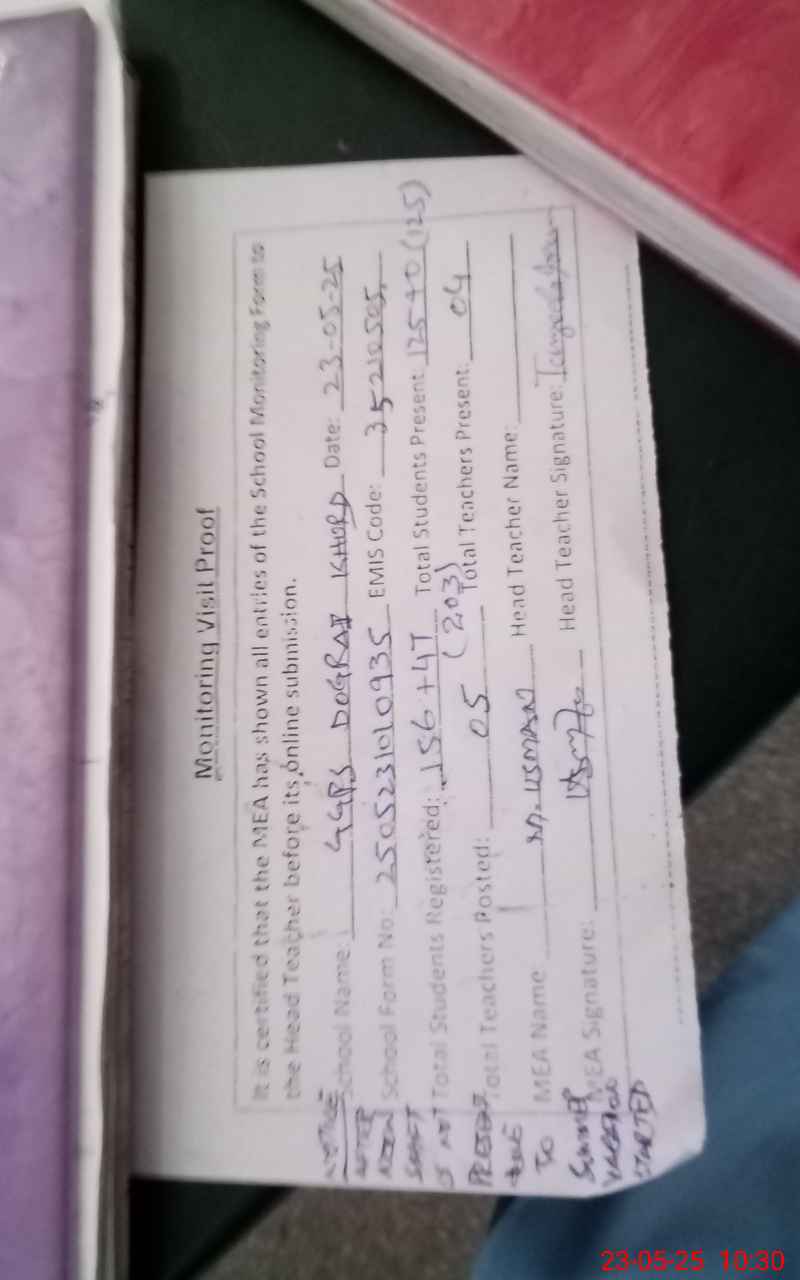 Monitoring Visit Proof
It is certified that the MEA has shown all entries of the School Monitoring Form to
the Head Teacher before its online submission.
School Name: GGPS DOGRAI KHURD Date: 23-05-25
School Form No: 2505231010935 EMIS Code: 35210505
Total Students Registered: 156+47 (203) Total Students Present: 125+0 (125)
Total Teachers Posted: 05 Total Teachers Present: 04
MEA Name M. USMAN Head Teacher Name:
MEA Signature: Usman Head Teacher Signature:
NOTICE
AFTER
NOON
SHIFT
IS NOT
PRESENT
DUE
TO
SUMMER
VACATION
STARTED
23-05-25 10:30